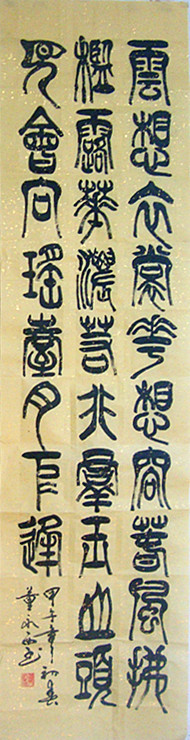 雲想衣裳花想容春風拂
檻露華濃若非羣玉山頭
見會向瑤臺月下逢
甲子年初春